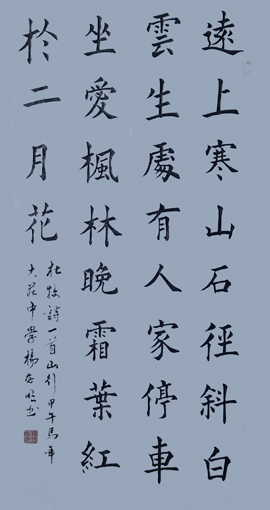 遠上寒山石徑斜白
雲生處有人家停車
坐愛楓林晚霜葉紅
於二月花
杜牧詩一首山行甲午馬年
中學楊书